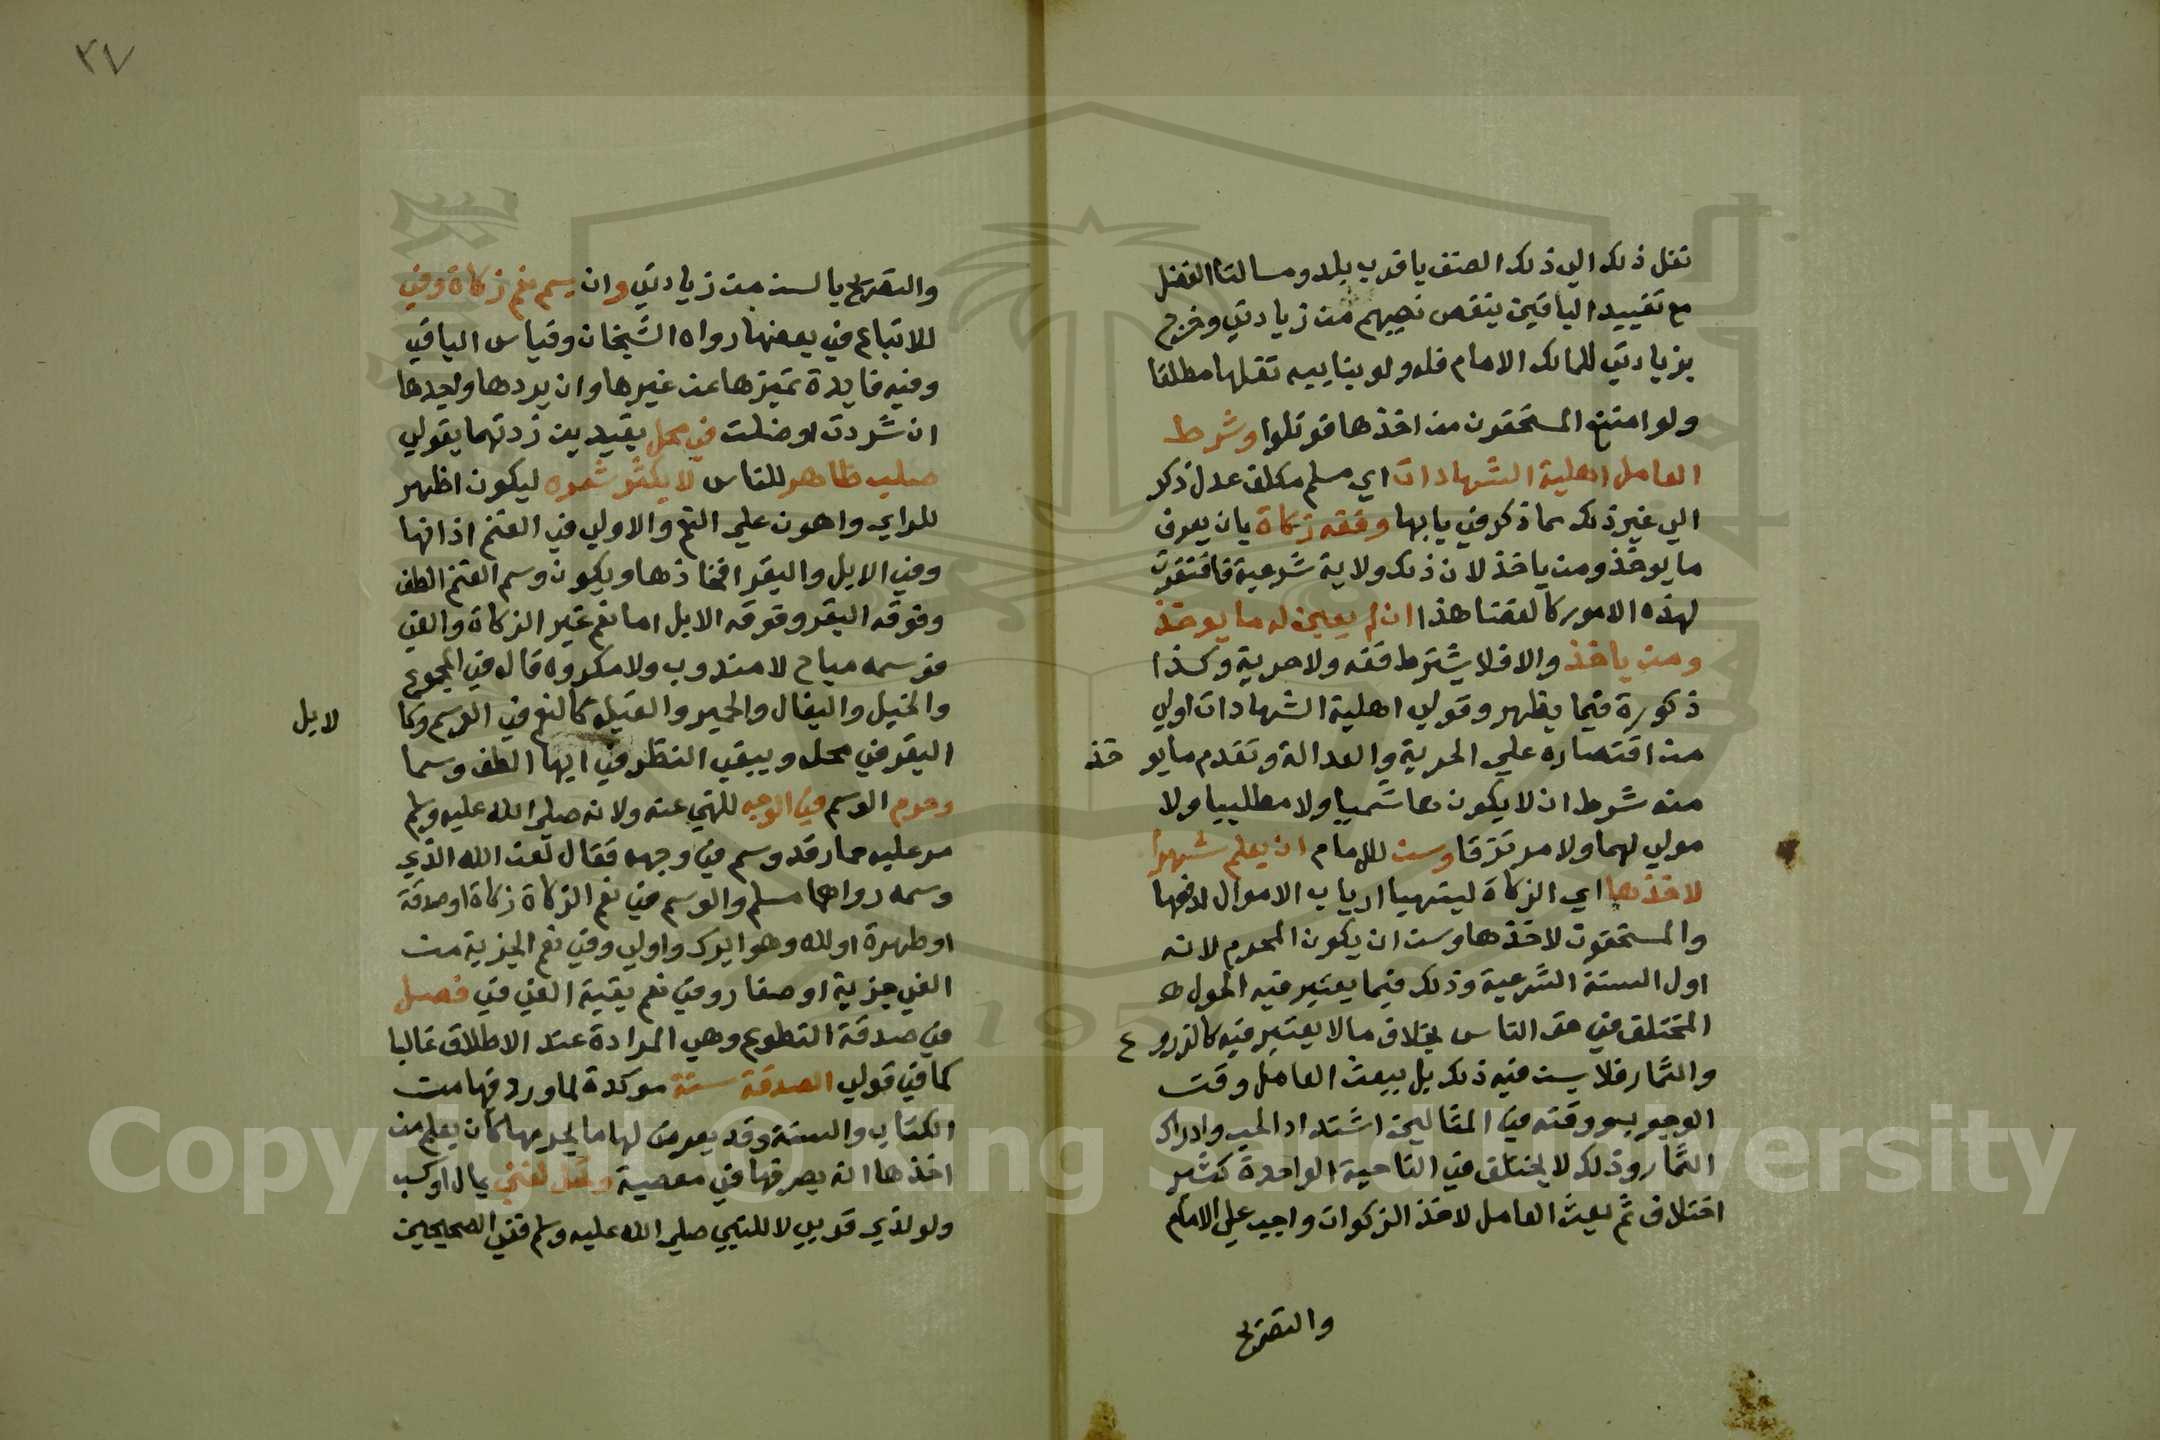 نقل ذلك الي ذلك الصنف باقرب بلد ومسالتا الفضل
مع تقييد الباقين بنقص نصيبهم من زيادتي وخرج
بزيادتي للمالك الامام فله ولو بنايبه نقلها مطلقا
ولو امتنع المستحقون من اخذها قوتلوا وشرط
العامل اهلية الشهادات اي مسلم مكلف عدل ذكر
الي غير ذلك مما ذكر في بابها وفقه زكاة بان يعرف
ما يوخذ ومن ياخذ لان ذلك ولاية شرعية فافتقرت
لهذه الامور كالقضا هذا ان لم يعين له ما يوخذ
ومن ياخذ والا فلا يشترط فقه ولا حرية وكذا
ذكورة فيما يظهر وقولي اهلية الشهادات اولي
من اقتصاره علي الحرية والعدالة وتقدم ما يوخذ
منه شرط ان لا يكون هاشميا ولا مطلبيا ولا
مولي لهما ولا مرتزقا وسن للامام ان يعلم شهرا
لاخذها اي الزكاة ليتهيا ارباب الاموال لدفعها
والمستحقون لاخذها وسن ان يكون المحرم لانه
اول السنة الشرعية وذلك فيما يعتبر فيه الحول
المختلف في حق الناس بخلاف ما لا يعتبر فيه كالزروع
والثمار فلا يسن فيه ذلك بل يبعث العامل وقت
الوجوب ووقته في المثالين اشتداد الحب وادراك
الثمار وذلك لا يختلف في الناحية الواحدة كثير
اختلاف ثم بعث العامل لاخذ الزكوات واجب علي الامام
والتصريح
٣٧
والتصريح بالسن من زيادتي وان يسم نعم زكاة وفي
للاتباع في بعضها رواه الشيخان وقياس الباقي
وفيه فايدة تميزها عن غيرها وان يردها واجدها
ان شردت او ضلت في محل بقيدين زدتهما بقولي
صلب ظاهر للناس لا يكثر شعره ليكون اظهر
للراي واهون علي النعم والاولي في الغنم اذانها
وفي الابل والبقر افخاذها ويكون وسم الغنم الطف
وفوقه البقر وفوقه الابل اما نعم غير الزكاة والفي
فوسمه مباح لا مندوب ولا مكروه قاله في المجموع
والخيل والبغال والحمير والفيلة كالنعم في الوسم وكا
لابل
البقر في محل ويبقي النظر في ايها الطف وسما
وحرم الوسم في الوجه للنهي عنه ولانه صلي الله عليه وسلم
مر عليه حمار قد وسم في وجهه فقال لعن الله الذي
وسمه رواهما مسلم والوسم في نعم الزكاة زكاة او صدقة
او طهرة او لله وهو ابرك واولي وفي نعم الجزية من
الفي جزية او صغار وفي نعم بقية الفي في فصل
في صدقة التطوع وهي المرادة عند الاطلاق غالبا
كما في قولي الصدقة سنة موكدة لما ورد فيها من
الكتاب والسنة وقد يعرض لها ما يحرمها كان يعلم من
اخذها انه يصرفها في معصية وتحل لغني بمال او كسب
ولو لذي قربي لا للنبي صلي الله عليه وسلم ففي الصحيحين